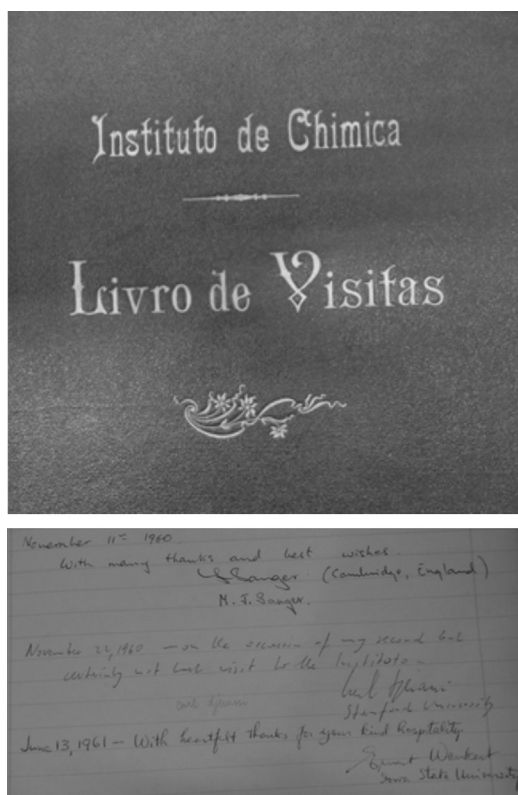 Instituto de Chimica
Livro de Visitas
November 11th 1960
With many thanks and best wishes.
F Sanger (Cambridge, England)
M. J. Sanger.
November 22, 1960 — on the occasion of my second but
certainly not last visit to the Instituto.
Carl Djerassi
Stanford University
June 13, 1961 — With heartfelt thanks for your kind hospitality
Ernest Wenkert
Iowa State University